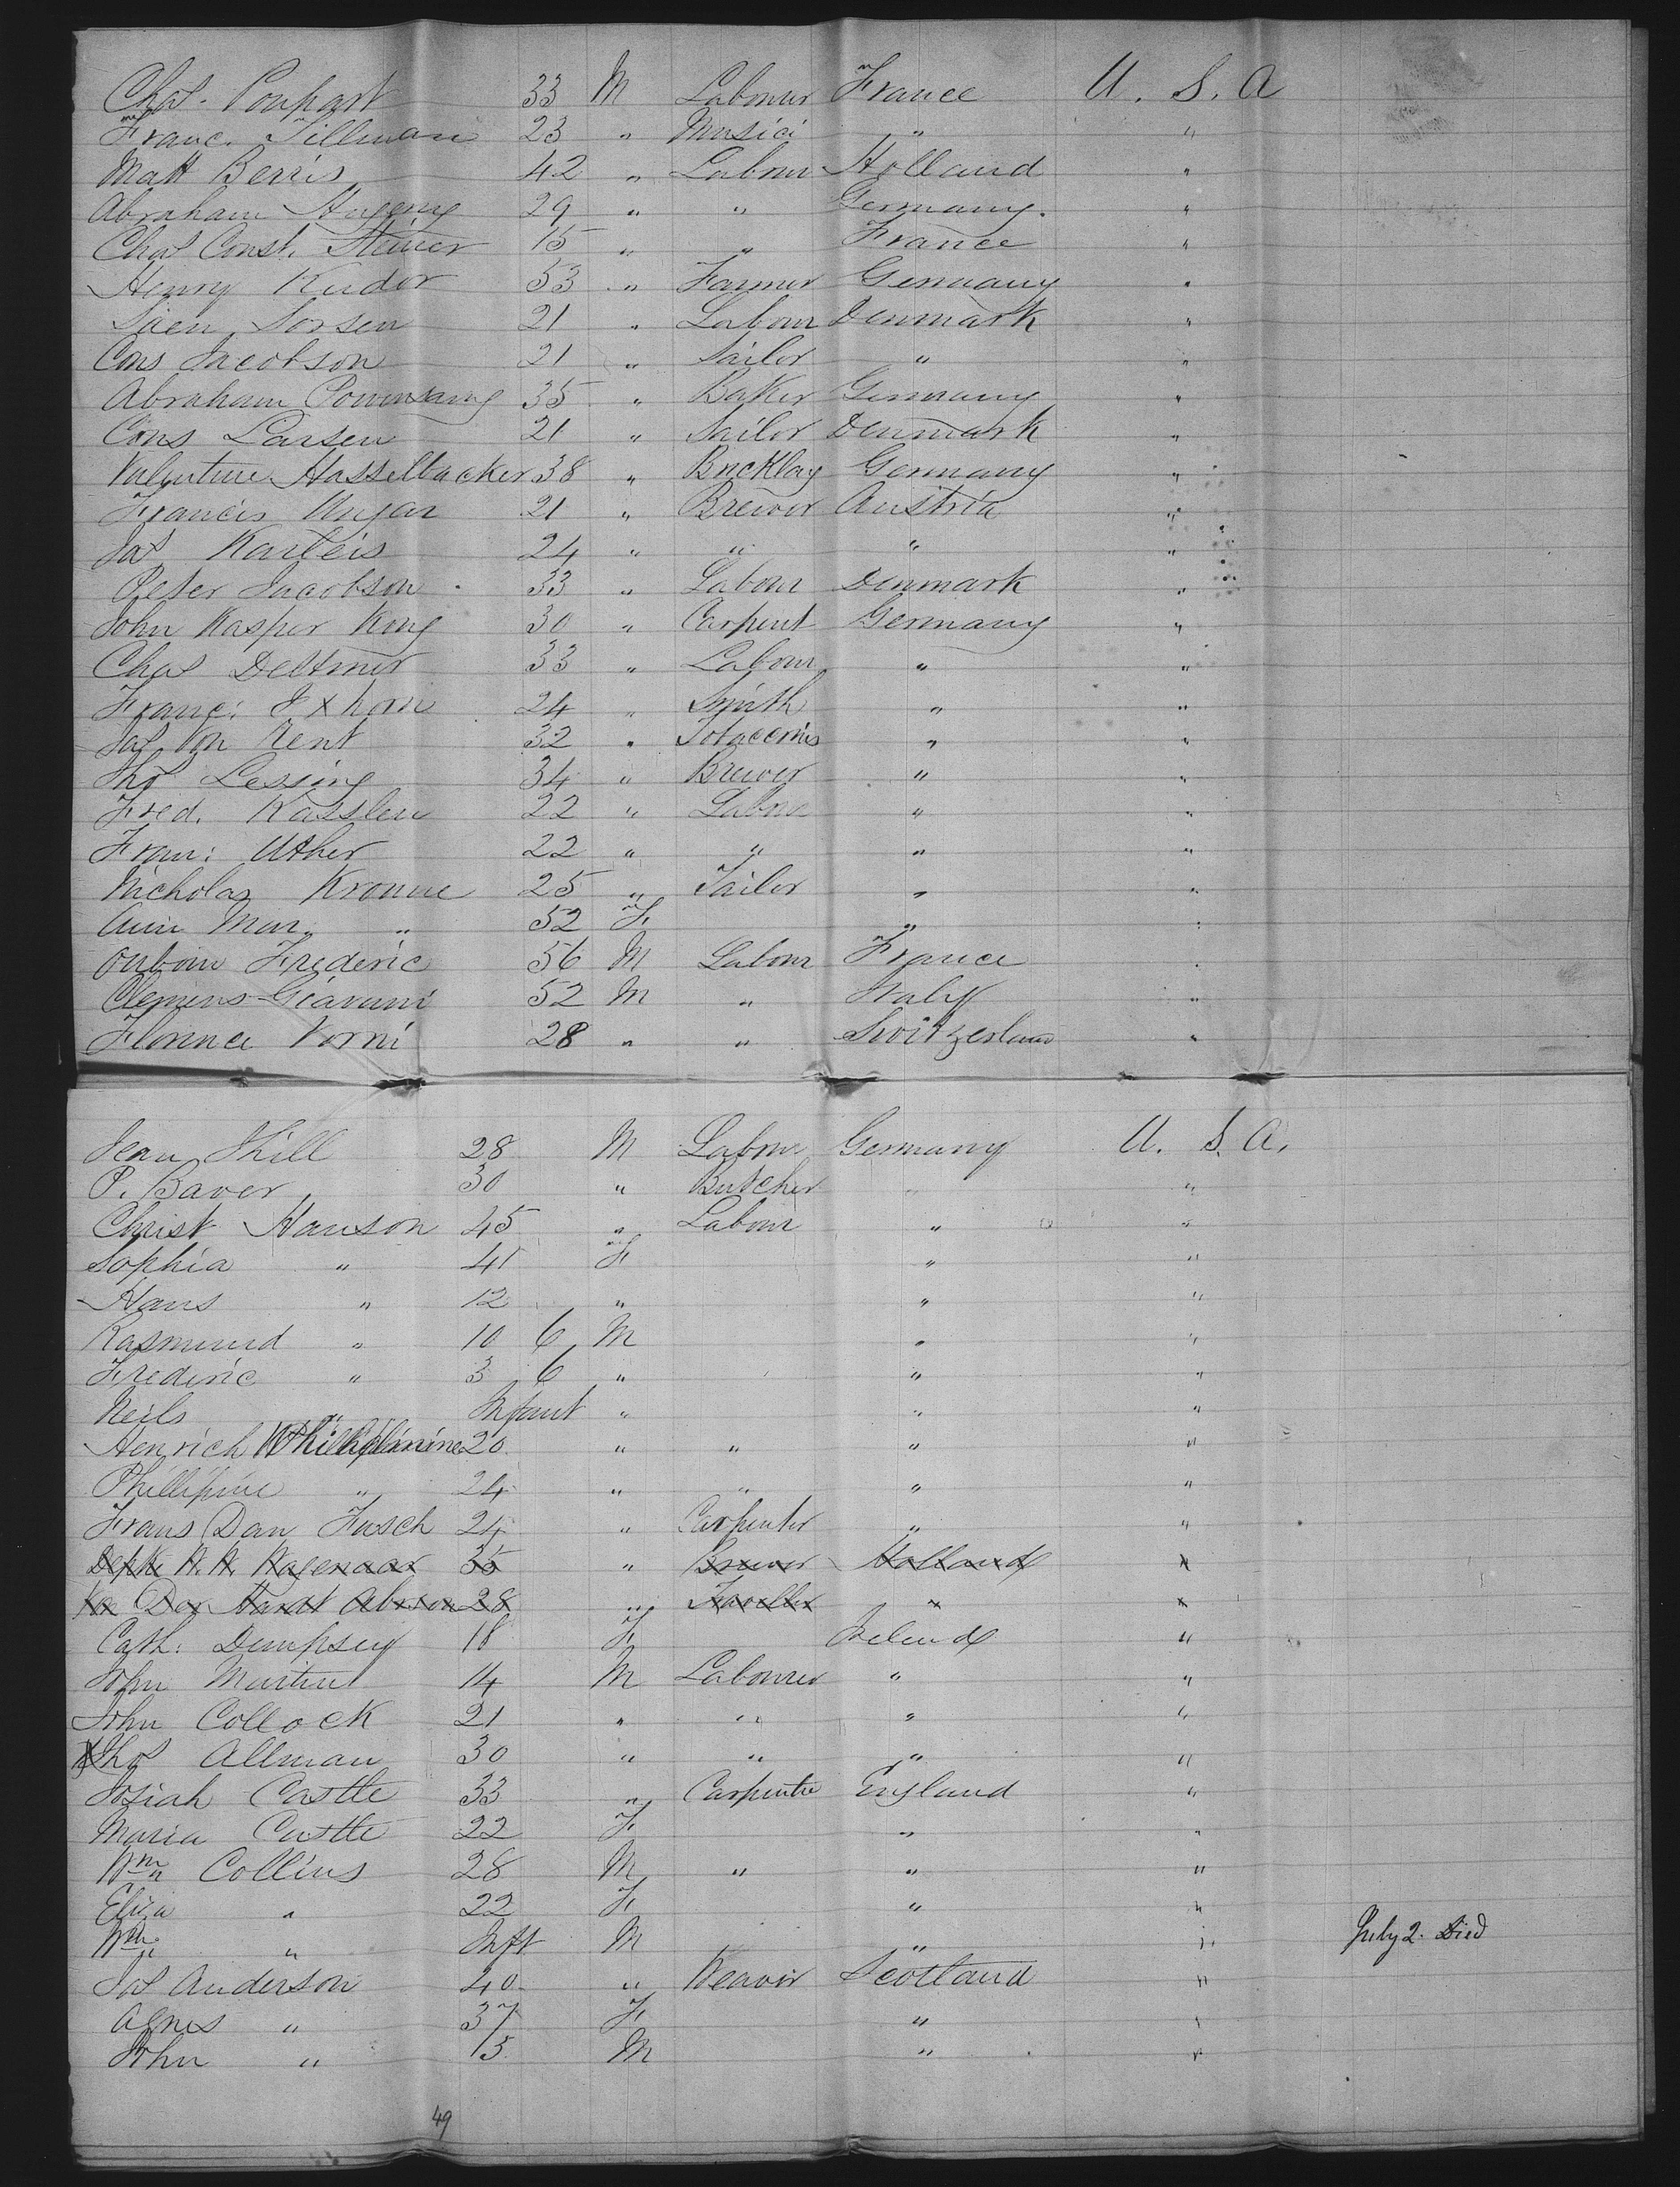 Chas. Pouhart 33 M Labourer France U. S. A
Franc. Tillman 23 " Musici " "
Matt Berris 42 " Labour Holland "
Abraham 29 " " Germany. "
Chas Const. Steiner 15 " " France "
Henry Kudor 53 " Farmer Germany "
Sorsen 21 " Labour Denmark "
Cons Jacobson 21 " Sailor " "
Abraham 35 " Baker Germany "
Cons Larsen 21 " Sailor Denmark "
Valentine Hasselbacker 38 " Bricklay Germany "
Francis Ungar 21 " Brewer Austria "
Jas Karleis 24 " " " "
Peter Jacobson 33 " Labour Denmark "
John Kasper King 30 " Carpent Germany "
Chas Deltmer 33 " Labour " "
Franc: Ixhorn 24 " Smith " "
Jas Von Rent 32 " " "
Thos Lessing 34 " Brewer " "
Fred. Kasslen 22 " Labour " "
Fran: Uther 22 " " " "
Nicholas Kronne 25 " Tailor " "
Ann Mar. " 52 F " "
Frederic 56 M Labour France "
Clemens Giavani 52 M " Italy "
Florence Vorni 28 " " Switzerland "
Jean Skill 28 M Labour Germany U. S. A.
P. Baver 30 " Butcher " "
Christ Hanson 45 " Labour " "
Sophia " 41 F " "
Hans " 12 " " "
Rasmund " 10 6 M " "
Frederic " 3 6 " " "
Neils " Infant " " "
Henrich 20 " " " "
Phillipine " 24 " " " "
Frans Dan Fusch 24 " Carpenter " "
Depke H. H. Wagenaar 35 " Brewer Holland "
Van Der Hardt Abrson 28 " " "
Cath: Dempsey 18 F Ireland "
John Martin 14 M Labourer " "
John Collock 21 " " " "
Thos Allman 30 " " " "
Josiah Castle 33 " Carpenter England "
Maria Castle 22 F " "
Wm Collins 28 M " " "
Eliza " 22 F " "
Wm " Inft M " " July 2. Died
Jas Anderson 40 " Weaver Scotland "
Agnes " 37 F " "
John " 13 M " "
49